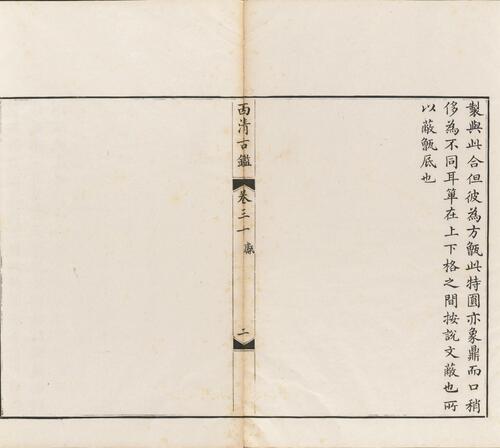 製與此合但彼為方甗此特圓亦象鼎而口稍
侈為不同耳箄在上下格之間按說文蔽也所
以蔽甑底也
西清古鑑
卷三一
二